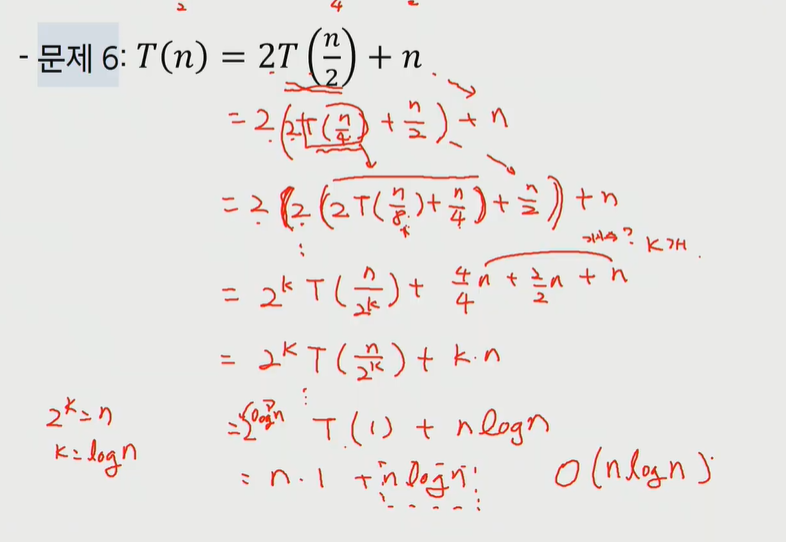 2 4
- 문제 6: T(n) = 2T(n/2) + n
= 2(2T(n/4) + n/2) + n
= 2(2(2T(n/8) + n/4) + n/2) + n
⋮ ? K개.
= 2^k T(n/2^k) + 4/4 n + 2/2 n + n
= 2^k T(n/2^k) + k·n
⋮
2^k = n = 2^logn T(1) + nlogn
k = logn = n·1 + nlogn O(nlogn)